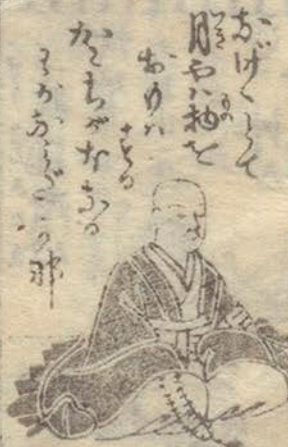 なげけとて
月やハ物を
おもハ
する
かこちがほなる
わがなみだか那